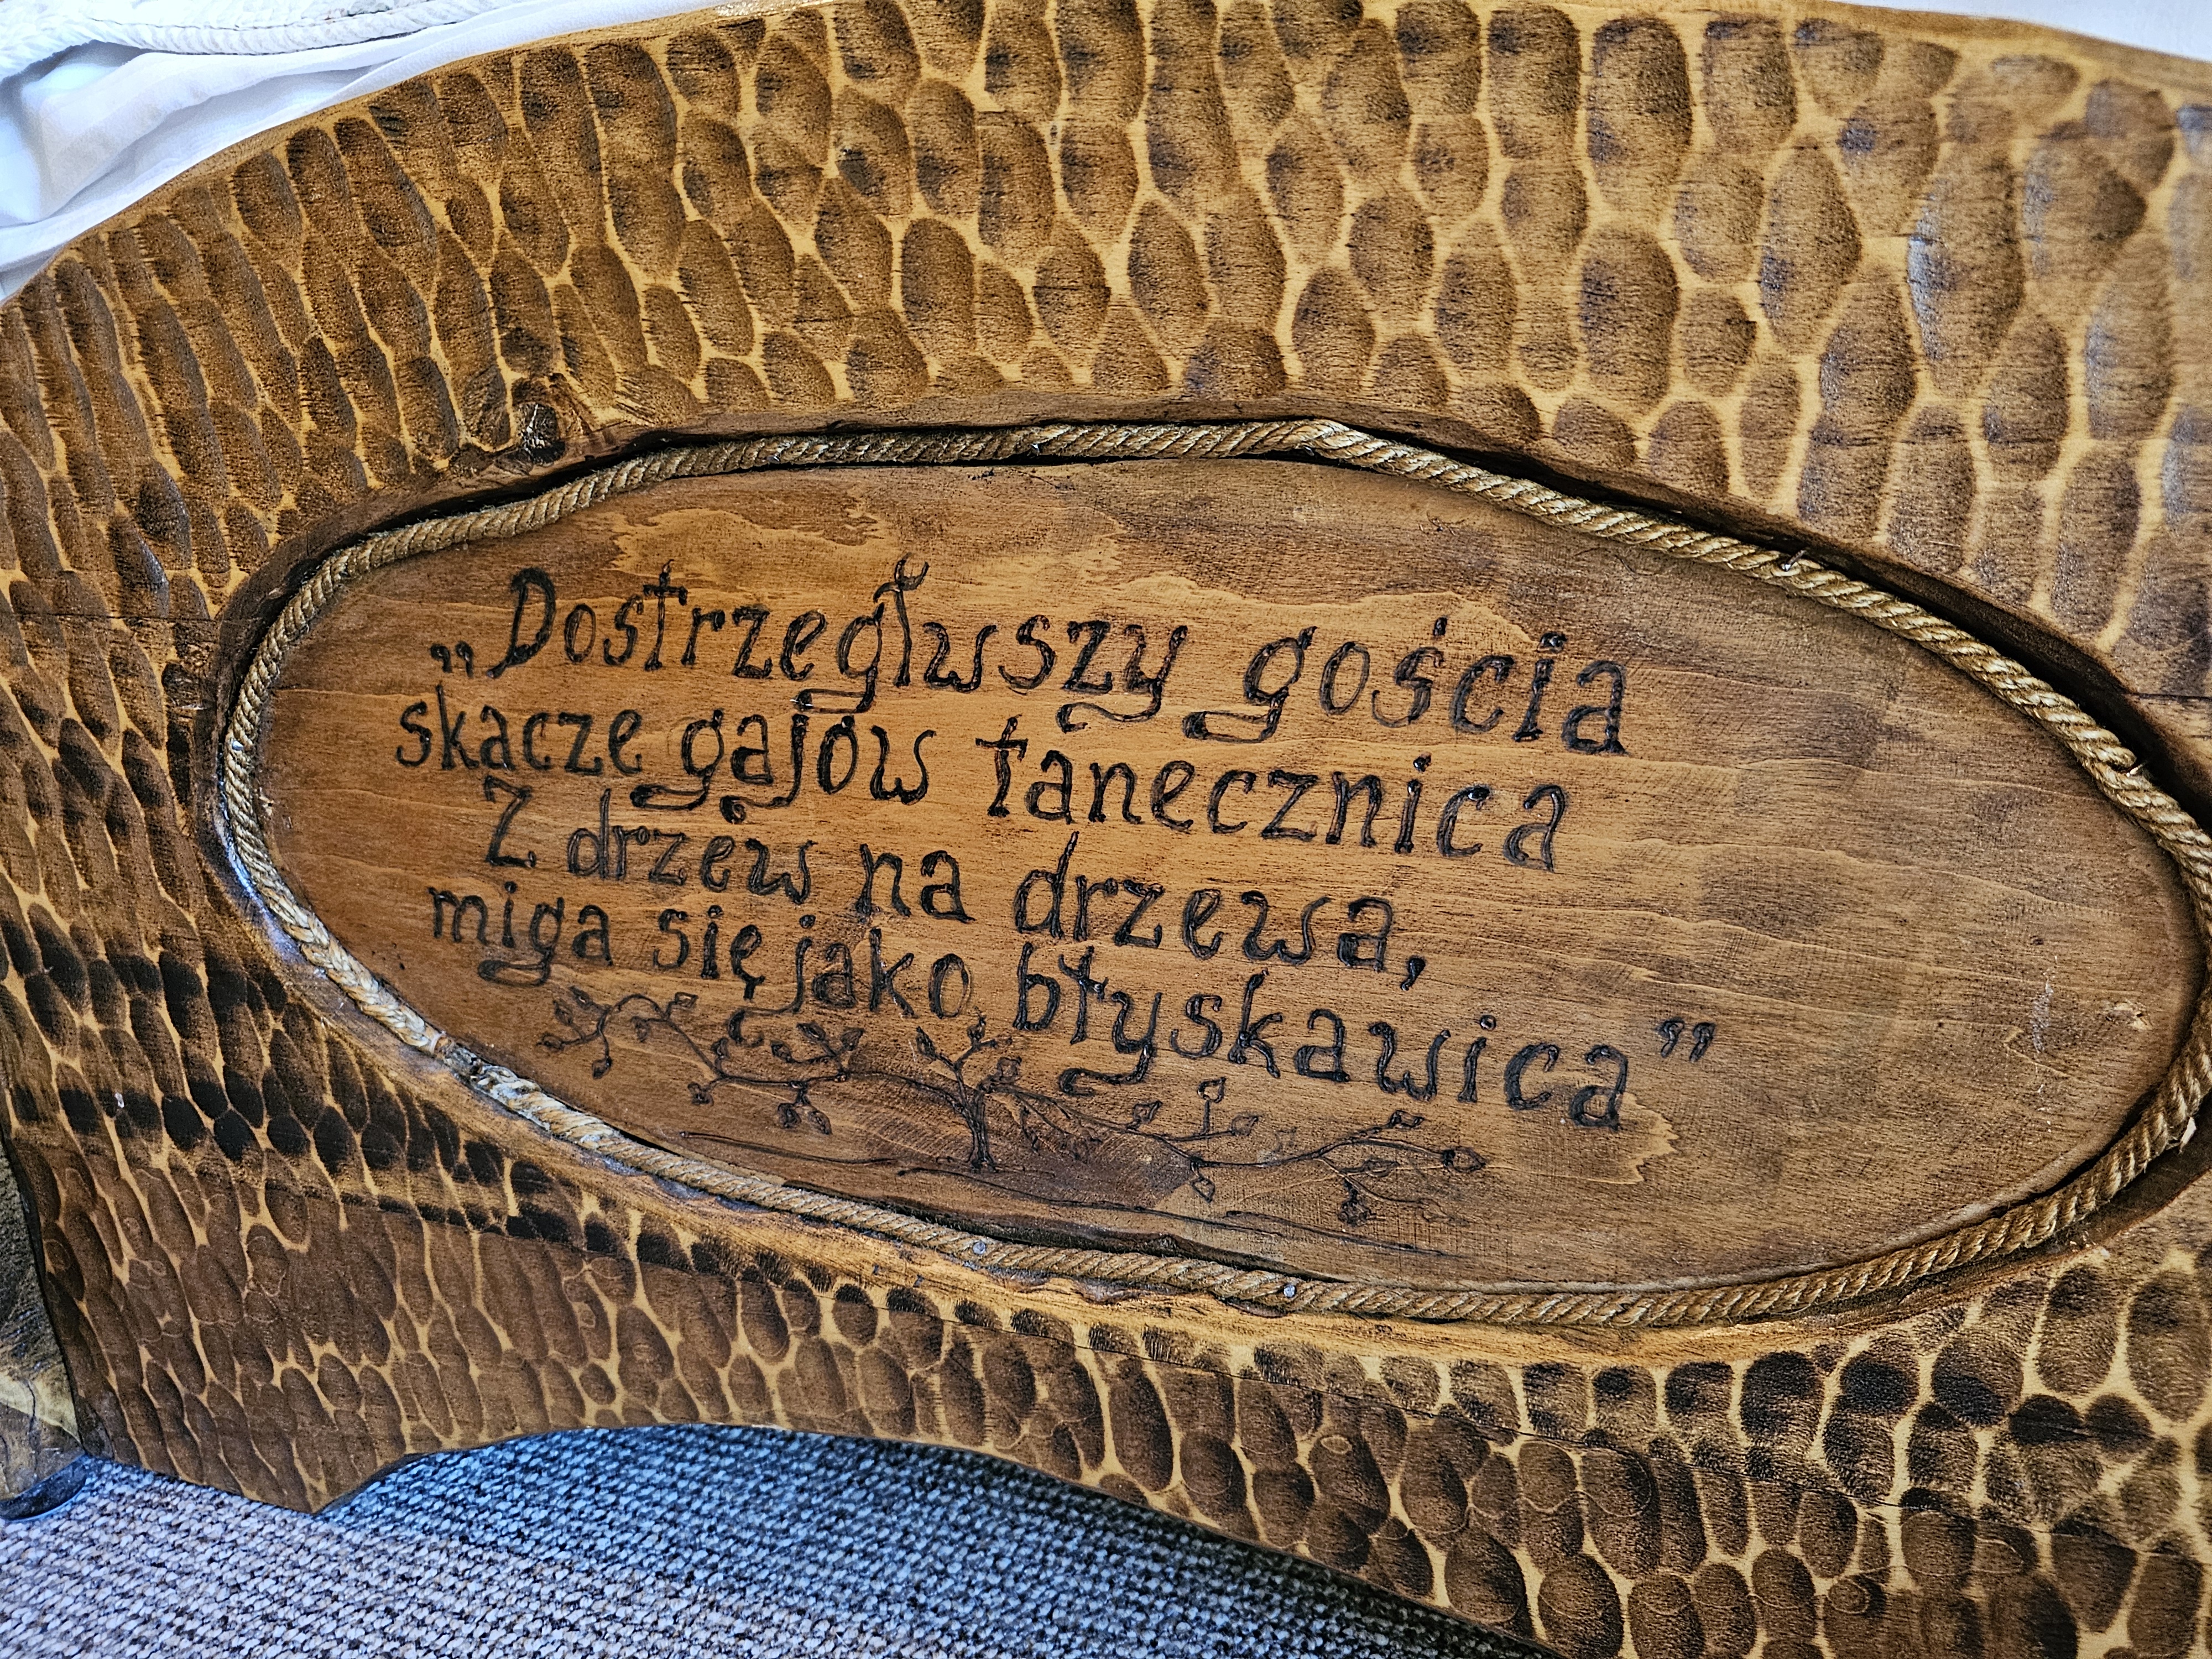 „Dostrzegłwszy gościa
skacze gajów tanecznica
Z drzew na drzewa,
miga się jako błyskawica”